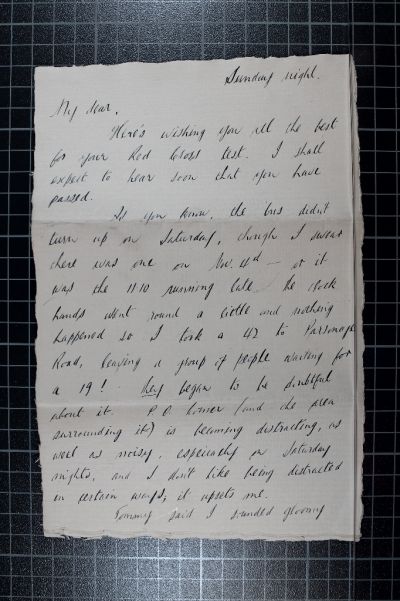 Sunday night.
My dear,
Here's wishing you all the best
for your Red Cross test. I shall
expect to hear soon that you have
passed.
As you know, the bus didn't
turn up on Saturday, though I swear
there was one on - or it
was the 11.10 running late. The clock
hands went round a little and nothing
happened so I took a 42 to Parsonage
Road, leaving a group of people waiting for
a 19! They began to be doubtful
about it. P.O. Corner (and the area
surrounding it) is becoming distracting, as
well as noisy, especially on Saturday
nights, and I don't like being distracted
in certain ways; it upsets me.
Tommy said I sounded gloomy